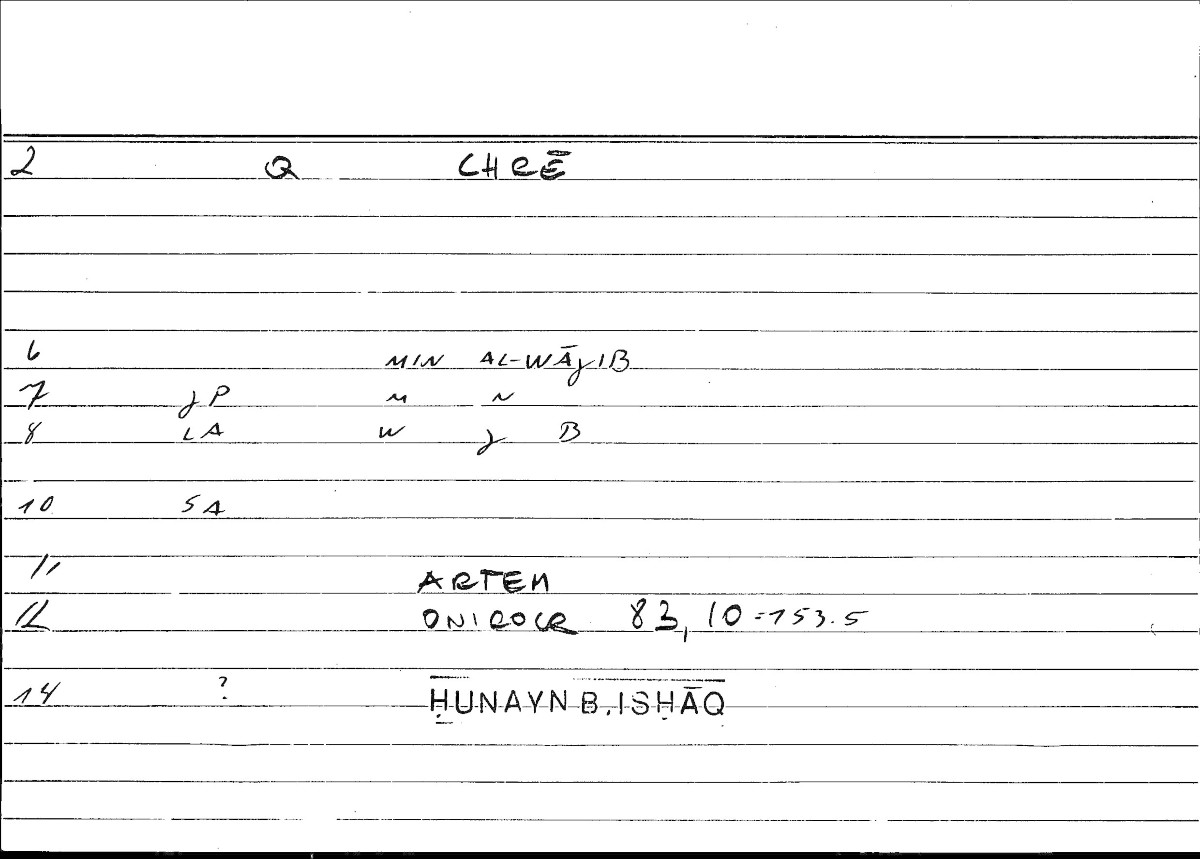 2 Q CHRĒ
6 MIN AL-WĀJIB
7 JP M N
8 LA W J B
10 SA
11 ARTEM
12 ONIROCR 83, 10=153.5
14 ? ḤUNAYN B. ISḤĀQ